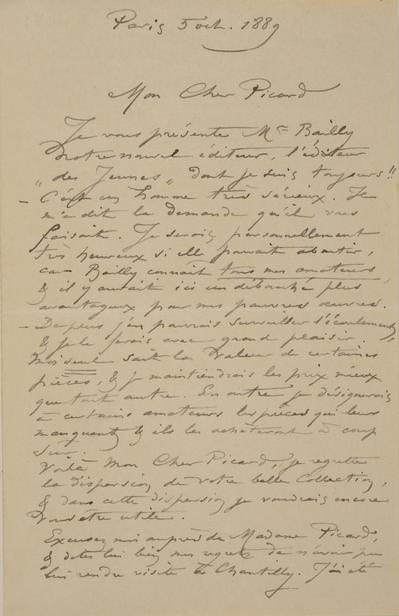 Paris 5 oct. 1889
Mon Cher Picard
Je vous présente Mr Bailly
notre nouvel éditeur, l'éditeur
"des Jeunes" dont je suis toujours!!
- C'est un homme très sérieux. Il
m'a dit la demande qu'il vous
faisait. Je serais personnellement
très heureux si elle pouvait aboutir,
car Bailly connait tous mes amateurs
& il y aurait ici un débouché plus
avantageux pour mes pauvres œuvres.
- De plus j'en pourrais surveiller l'écoulement,
& je le ferais avec grand plaisir.
Moi seul sait la valeur de certaines
pièces, & je maintiendrais les prix mieux
que tout autre. En outre je désignerais
à certains amateurs les pièces qui leur
manquent & ils les achèteront à coup
sur.
Voilà Mon Cher Picard, je regrette
la dispersion de votre belle Collection,
& dans cette dispersion je voudrais encore
vous être utile.
Excusez moi auprès de Madame Picard,
& dites lui bien mes regrets de n'avoir pu
lui rendre visite à Chantilly. J'ai été